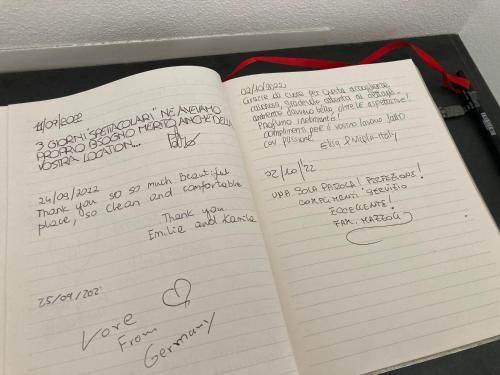 11/09/2022
3 GIORNI "SPETTACOLARI" NE AVEVAMO
PROPRIO BISOGNO MERITO ANCHE DELLA
VOSTRA LOCATION...
24/09/2022
Thank you so so much beautiful
place, so clean and comfortable
Thank you
Emilie and Kamila
25/09/202
Love
From
Germany
02/10/2022
Grazie di cuore per questa accoglienza
calorosa, gradevole, attenta ai dettagli
ambiente davvero bello, oltre le aspettative!
Profumo inebriante!
Complimenti per il vostro lavoro fatto
con passione
Elisa &
Italy
02/10/22
UNA SOLA PAROLA! PERFEZIONE!
COMPLIMENTI SERVIZIO
ECCELLENTE!
FAM. MAZZOLI